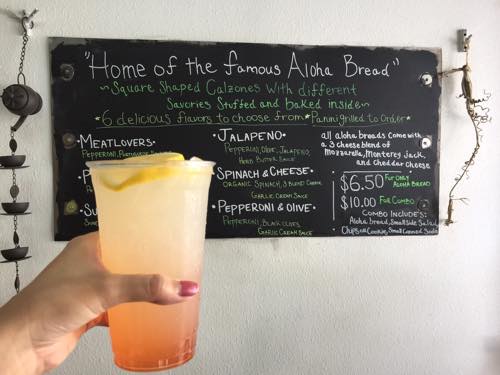 "Home of the famous Aloha Bread"
~Square Shaped Calzones With different
Savories Stuffed and baked inside~
*6 delicious flavors to choose from*Paninigrilled to Order*
•Meatlovers•
Pepperoni,
•Jalapeño•
Pepperoni, Jalapeño,
Herb Butter Sauce
•Spinach & Cheese•
Organic Spinach, 3 Blend Cheese
Garlic Cream Sauce
•Pepperoni & Olive•
Pepperoni, Black Olives,
Garlic Cream Sauce
all aloha breads come with
a 3 cheese blend of
Mozzarella, Monterey Jack,
and Cheddar Cheese
$6.50 For only
Aloha Bread
$10.00 For Combo
Combo Includes:
Aloha bread, Small Side Salad
Chips or Cookie, Small Canned Soda